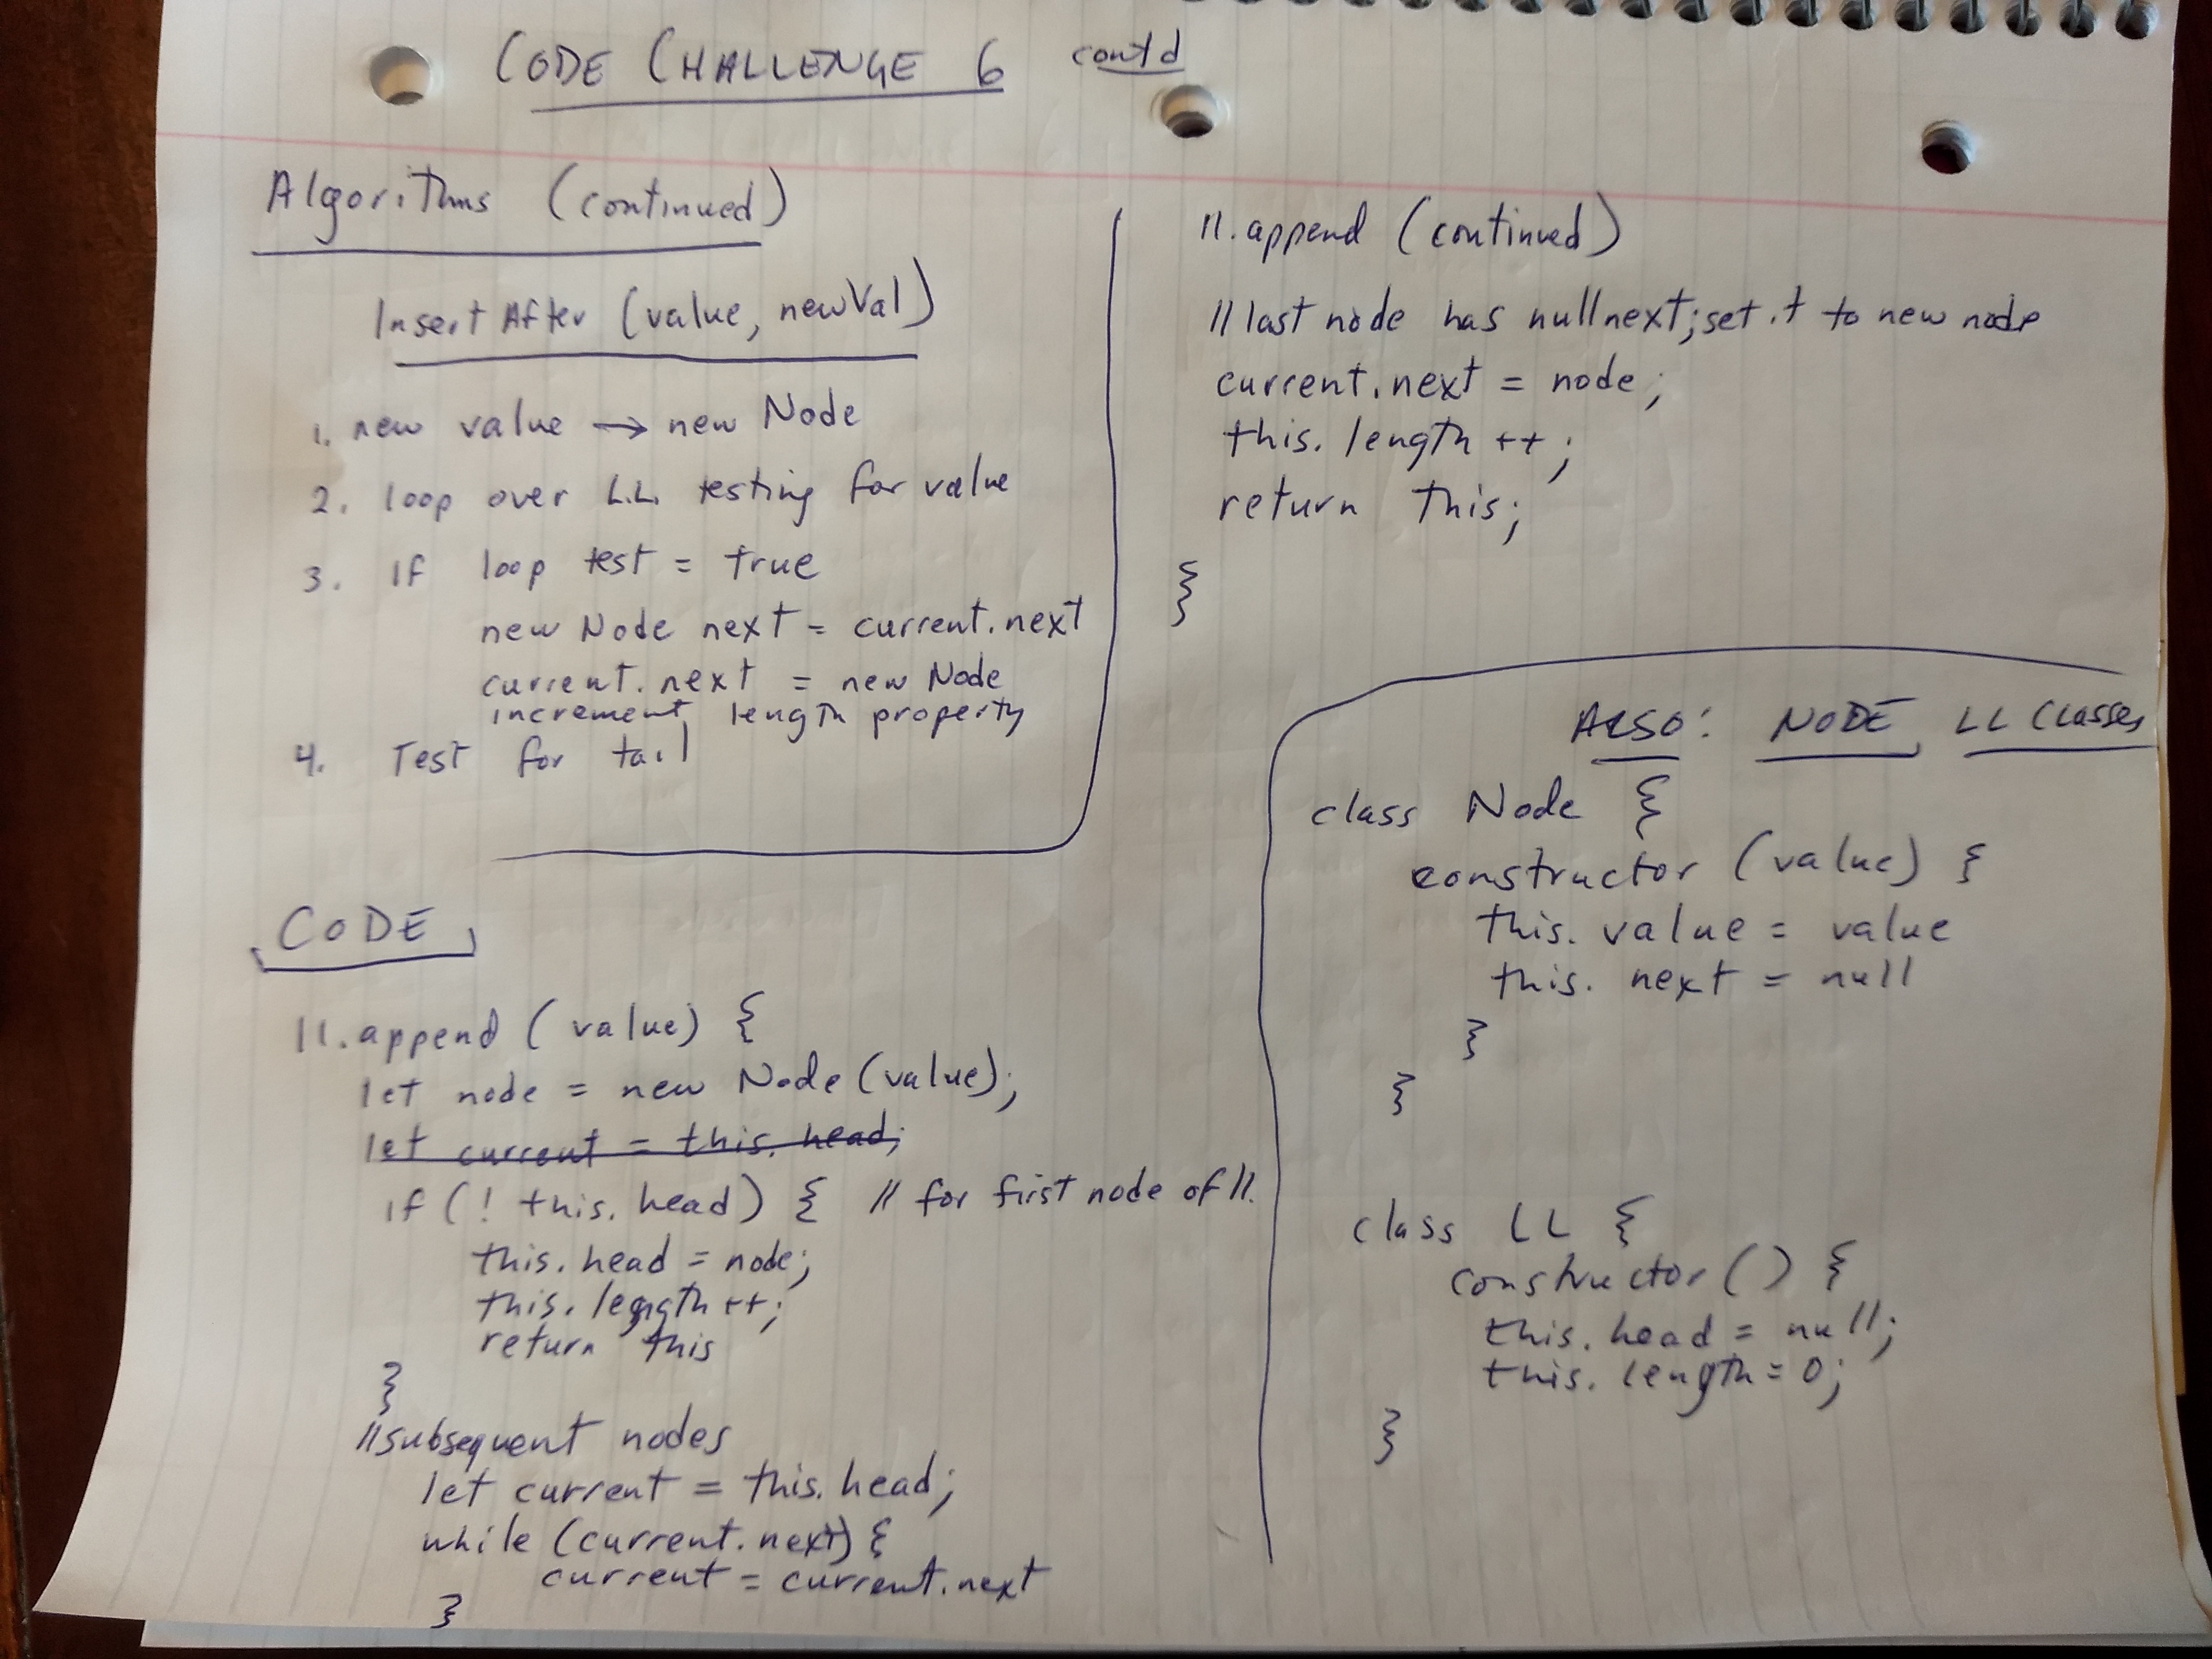 CODE CHALLENGE 6 cont'd
Algorithms (continued)
Insert After (value, newVal)
1. new value → new Node
2. loop over L.L. testing for value
3. If loop test = true
new Node next = current.next
current.next = new Node
increment length property
4. Test for tail
CODE
ll.append (value) {
let node = new Node (value);
let current = this.head;
if (! this.head) { // for first node of ll.
this.head = node;
this.length ++;
return this
}
//subsequent nodes
let current = this.head;
while (current.next) {
current = current.next
}
ll.append (continued)
// last node has null next; set it to new node
current.next = node;
this.length ++;
return this;
}
ALSO: NODE, LL Classes
class Node {
constructor (value) {
this.value = value
this.next = null
}
}
class LL {
constructor () {
this.head = null;
this.length = 0;
}